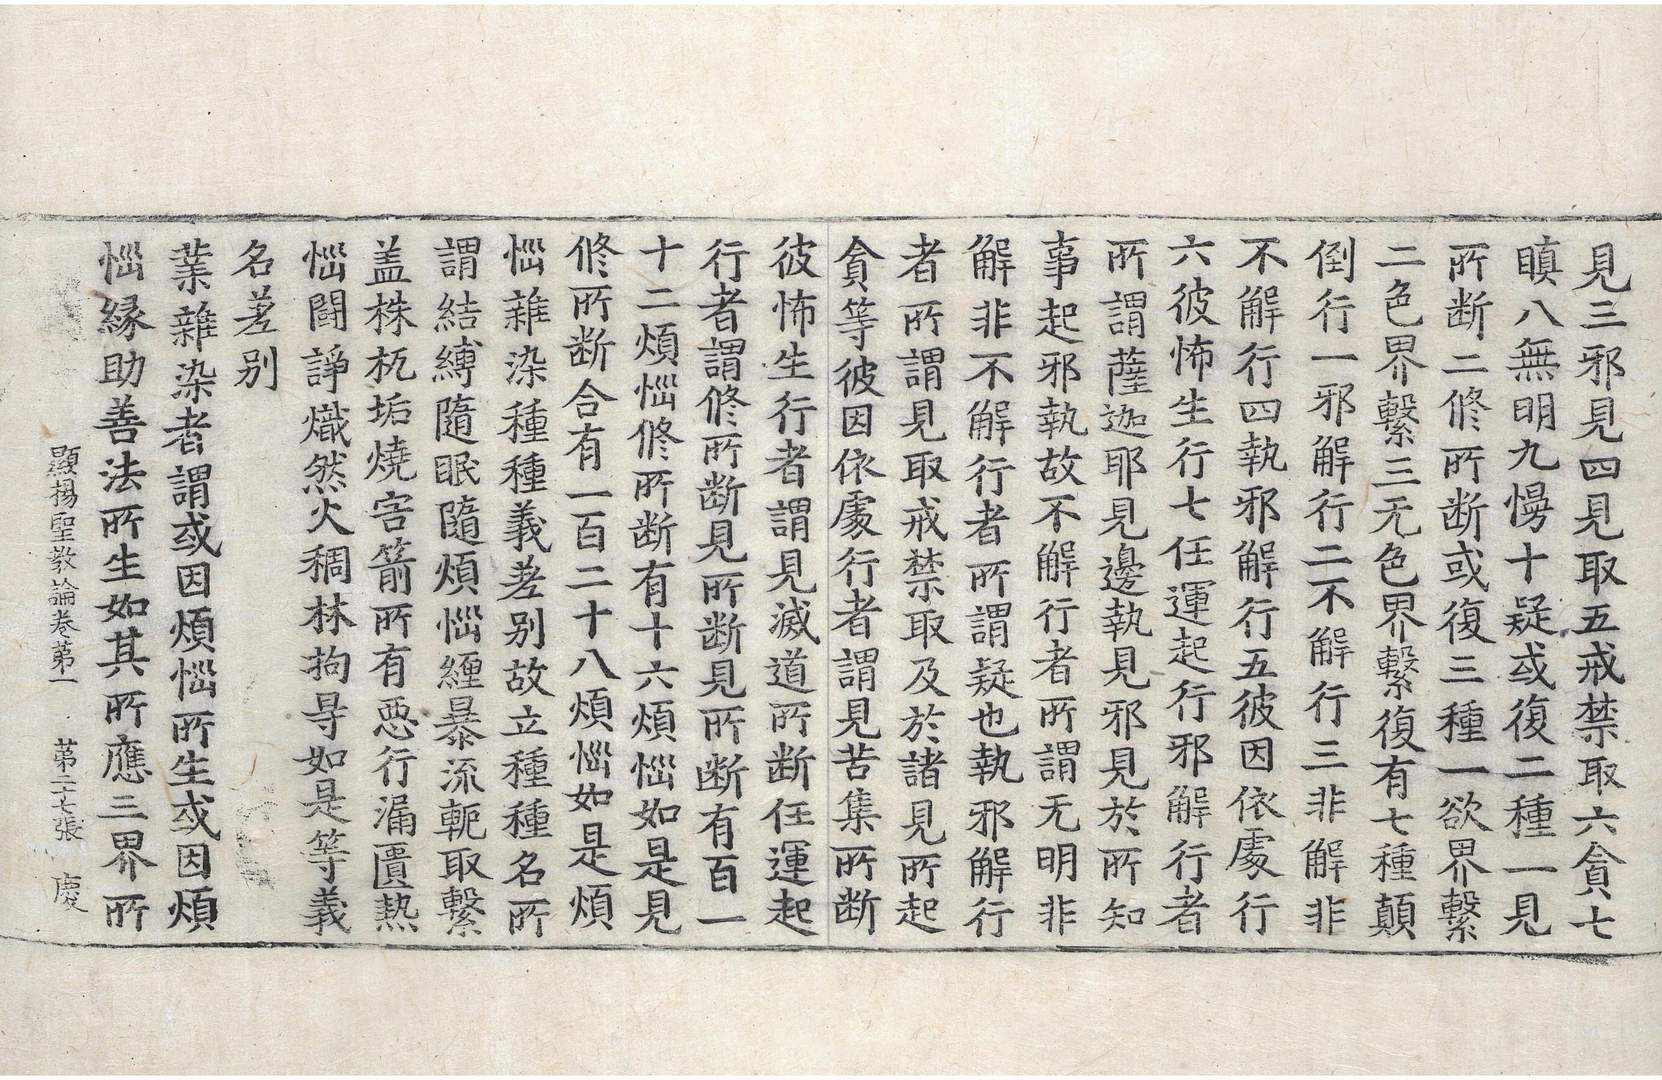 見三邪見四見取五戒禁取六貪七
瞋八無明九慢十疑或復二種一見
所断二修所断或復三種一欲界繫
二色界繫三无色界繫復有七種顛
倒行一邪解行二不解行三非解非
不解行四執邪解行五彼因依處行
六彼怖生行七任運起行邪解行者
所謂薩迦耶見邊執見邪見於所知
事起邪執故不解行者所謂无明非
解非不解行者所謂疑也執邪解行
者所謂見取戒禁取及於諸見所起
貪等彼因依處行者謂見苦集所断
彼怖生行者謂見滅道所断任運起
行者謂修所断見所断見所断有百一
十二煩惱修所断有十六煩惱如是見
修所断合有一百二十八煩惱如是煩
惱雜染種種義差别故立種種名所
謂結縛隨眠隨煩惱纏暴流軛取繫
盖株杌垢燒害箭所有惡行漏匱熱
惱鬪諍熾然火稠林拘㝵如是等義
名差别
業雜染者謂或因煩惱所生或因煩
惱緣助善法所生如其所應三界所
顯揚聖教論卷第一　第二十七張　慶